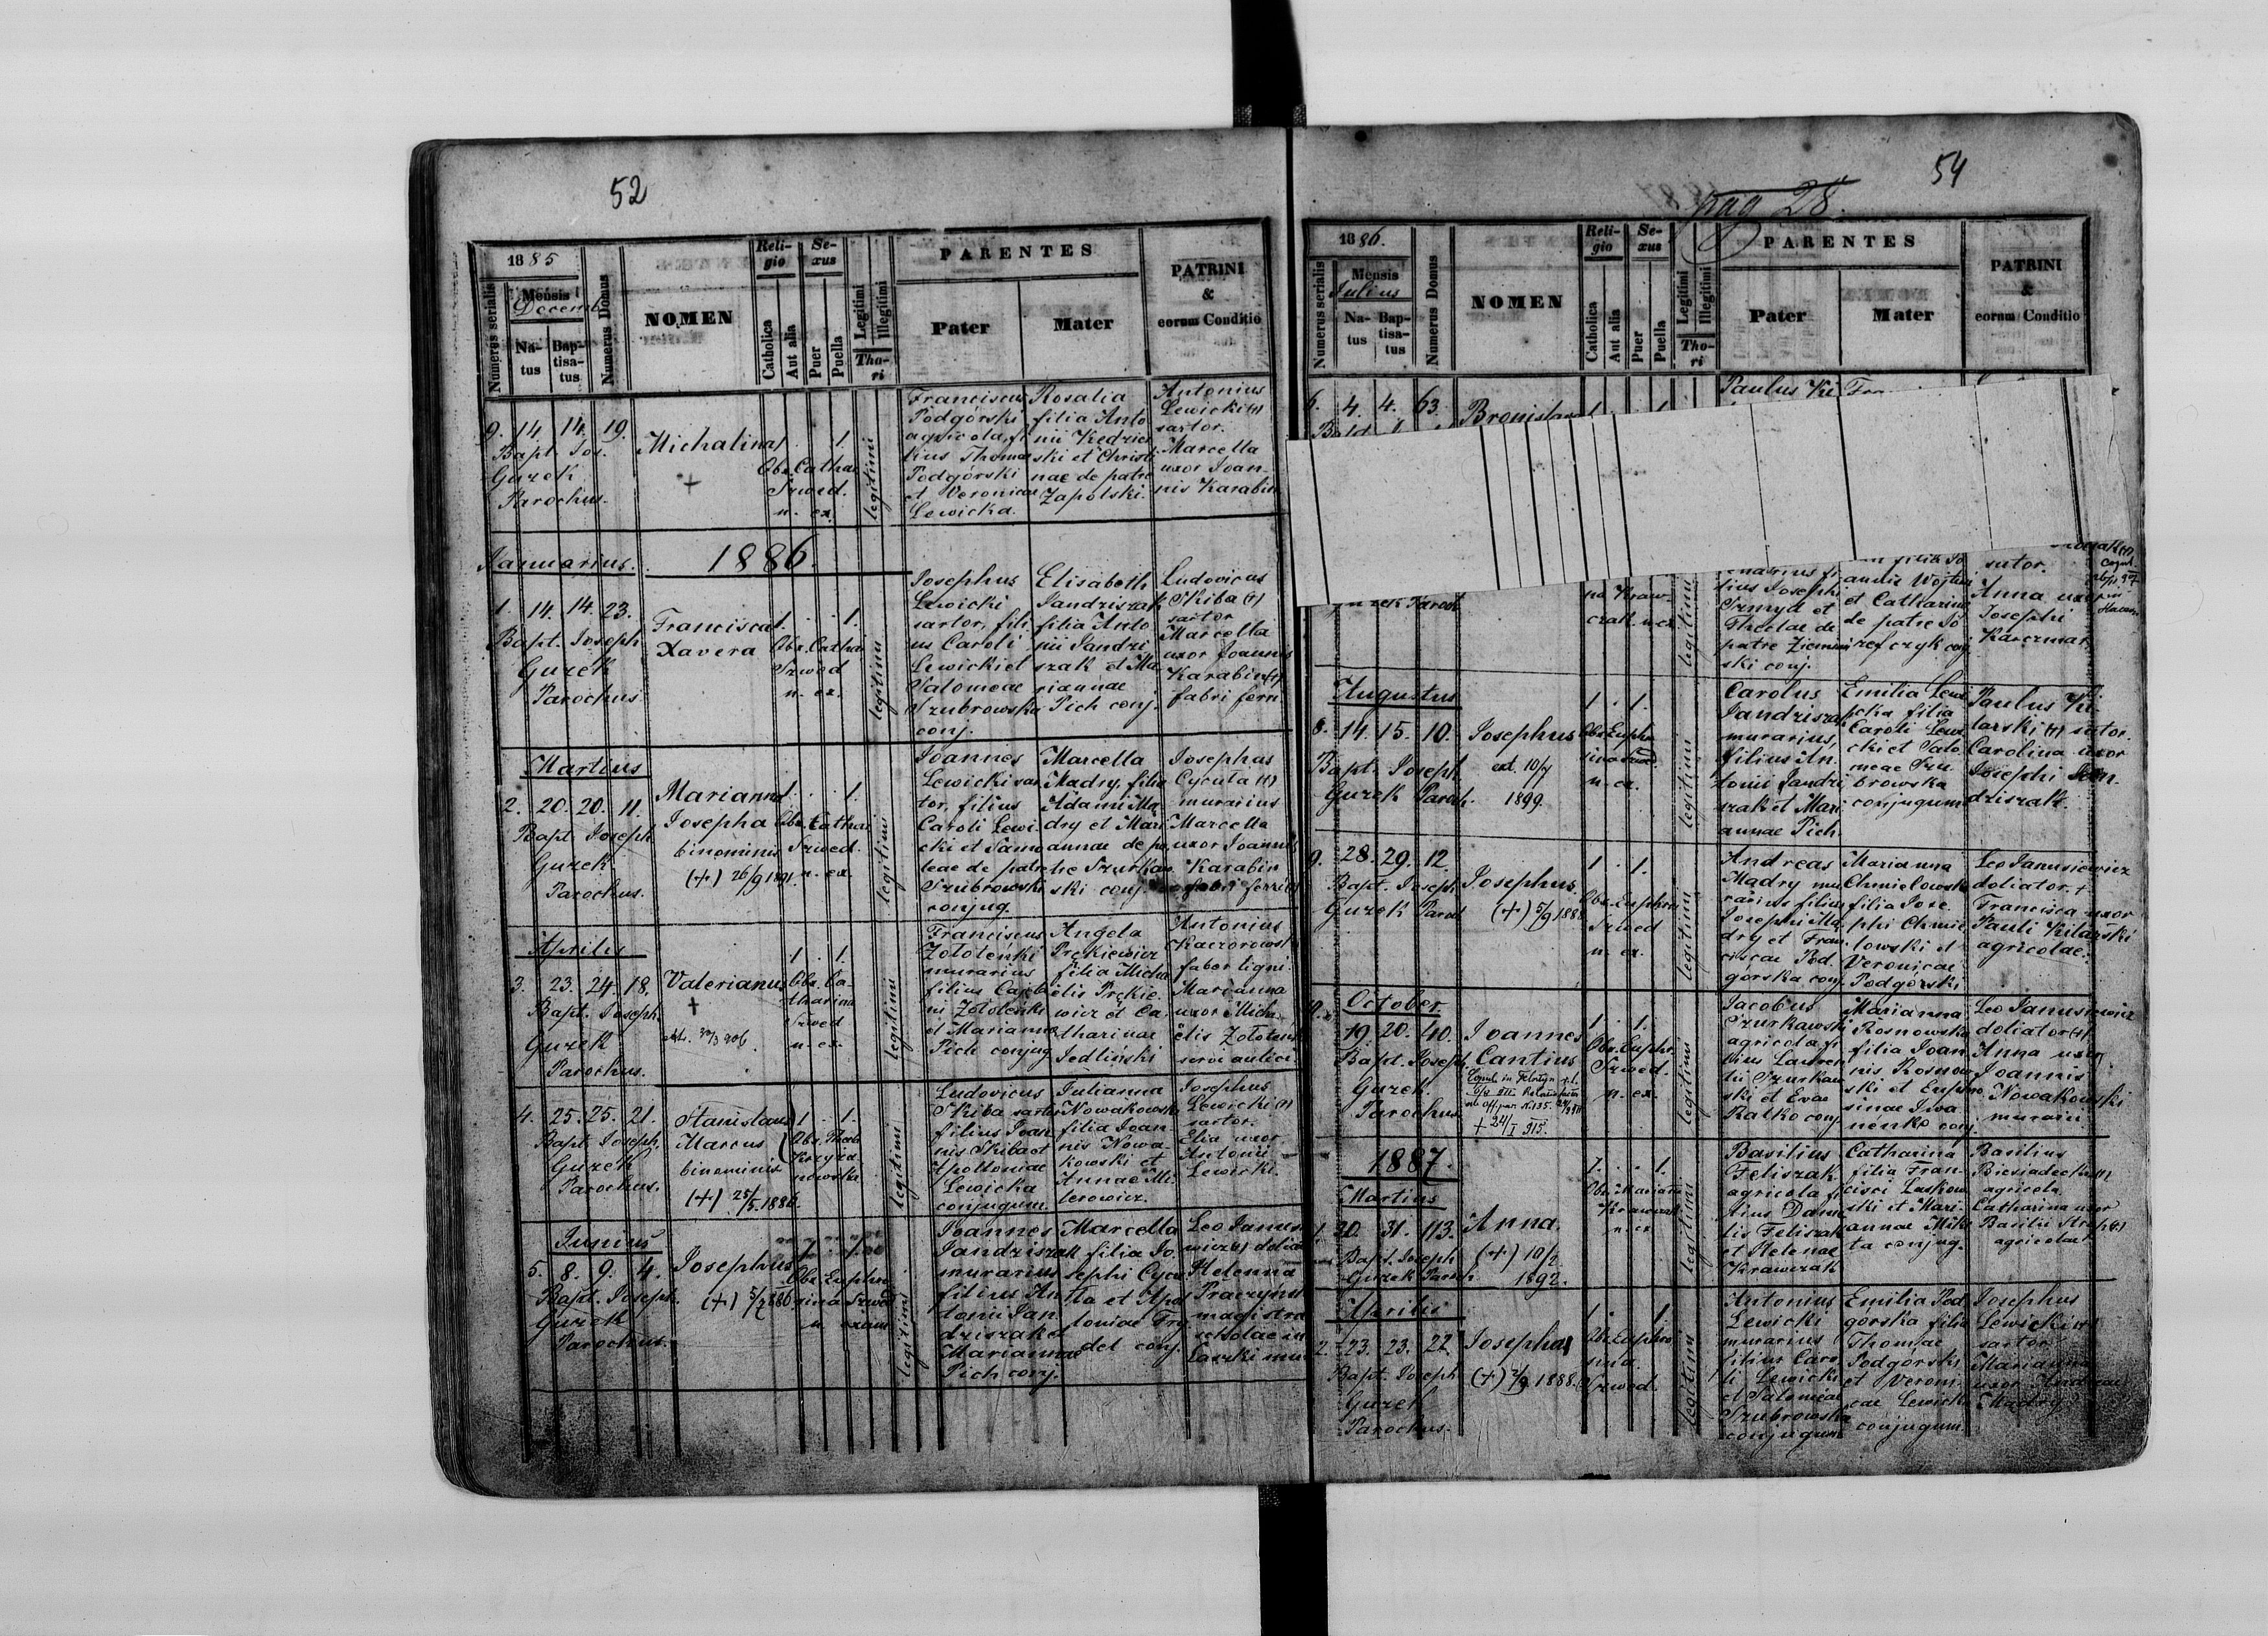 52
1885
Mensis
Decemb
Numerus serialis
Na-
tus
Bap-
tisa-
tus
Numerus Domus
NOMEN
Reli-
gio
Catholica
Aut alia
Se-
xus
Puer
Puella
Legitimi
Illegitimi
Tho-
ri
PARENTES
Pater
Mater
PATRINI
&
eorum Conditio
9. 14. 14. 19.
Bapt. Jos.
Gurek
Parochus.
Michalina
+
1. 1.
Obs. Catha
Szwed.
n. ex.
legitimi
Franciscus
Podgórski
agricola, fi
lius Thomae
Podgórski
et Veronicae
Lewicka.
Rosalia
filia Anto
nii Kędzier
ski et Christi
nae de patre
Zapolski.
Antonius
Lewicki (+)
sartor.
Marcella
uxor Joan-
nis Karabin
Januarius.
1886.
1. 14. 14. 23.
Bapt. Joseph
Gurek
Parochus
Francisca
Xavera
1. 1.
Obs. Catha
Szwed
n. ex.
legitimi
Josephus
Lewicki
sartor, fili
us Caroli
Lewicki et
Salomeae
Szubrowska
conj.
Elisabeth
Jandziszak
filia Anto
nii Jandzi
szak et Ma
riannae
Pich conj.
Ludovicus
Skiba (+)
sartor
Marcella
uxor Joannis
Karabin (+)
fabri ferri
Martius
2. 20. 20. 11.
Bapt. Joseph
Gurek
Parochus.
Marianna
Josepha
binominis
(+) 26/9 1891.
1. 1.
Obs. Catha
Szwed.
n. ex.
legitimi
Joannes
Lewicki sar
tor, filius
Caroli Lewi
cki et Samo
leae de patre
Szubrowski
conjug.
Marcella
Madry, filia
Adami Ma
dry et Mari
annae de pa
tre Szurkow
ski conj.
Josephus
Cycula (+)
murarius
Marcella
uxor Joannis
Karabin
fabri ferri (+)
Aprilis
3. 23. 24. 18.
Bapt. Joseph.
Gurek
Parochus.
Valerianus
+
1. 1.
Obs. Ca-
tharina
Szwed
n. ex.
legitimi
Franciscus
Zołoteńki
murarius
filius
Zołoteński
et Marianna
Pich conjug
Angela
Prckiewicz
filia Micha
elis Prckie
wicz et Ca
tharinae
Jedliński
Antonius
Kaczorowski
faber ligni.
Marianna
uxor Micha
elis Zołoteński
servi aulici
4. 25. 25. 21.
Bapt. Joseph.
Gurek
Parochus.
Stanislaus
Marcus
binominis
(+) 25/5 1886.
1. 1.
Obs. Thecla
Krzyża-
nowska
legitimi
Ludovicus
Skiba sartor
filius Joan
nis Skiba et
Apolloniae
Lewicka
conjugum.
Julianna
Nowakowska
filia Joan
nis Nowa-
kowski et
Annae Mi
lerowicz.
Josephus
Lewicki (+)
sartor.
Elia uxor
Antonii
Lewicki.
Junius
5. 8. 9. 4.
Bapt. Joseph.
Gurek
Parochus.
Josephus
(+) 5/7 886
1. 1.
Obs. Euphro
sina Szwed
n. exam
legitimi
Joannes
Jandziszak
murarius
filius An
tonii Jan
dziszak et
Mariannae
Pich conj.
Marcella
filia Jo
sephi Cycu
la et Apol
loniae Fry
del conj.
Leo Janus
wicz (+) dolia
Helenna
Praczyns
magistra
scholae in
Laszki mur
54
pag 28.
1886.
Mensis
Julius
Numerus serialis
Na-
tus
Bap-
tisa-
tus
Numerus Domus
NOMEN
Reli-
gio
Catholica
Aut alia
Se-
xus
Puer
Puella
Legitimi
Illegitimi
Tho-
ri
PARENTES
Pater
Mater
PATRINI
&
eorum Conditio
6. 4. 4. 63.
Bronislava
Paulus Ki
lius Josephi
Szmyd et
Theclae de
patre Ziemian
ski conj.
annis Wojton
et Catharina
de patre Jo
zefczyk conj
sutor.
Anna uxor
Josephi
Karczmar
Kraw-
czak n. ex.
legitimi
Augustus
8. 14. 15. 10.
Bapt. Joseph
Gurek Paroch.
Josephus
ext. 10/7
1899.
1. 1.
Obs. Euphro
sina Szwed
n. ex.
legitimi
Carolus
Jandziszak
murarius,
filius An
tonii Jandzi
szak et Mari
annae Pich.
Emilia Lewi
cka filia
Caroli Lewi
cki et Salo
meae Szu
browska
conjugum
Paulus Ki
larski (+) sutor.
Carolina uxor
Josephi Jan
dziszak.
9. 28. 29. 12.
Bapt. Joseph
Gurek Paroch
Josephus.
(+) 5/9 1888
1. 1.
Obs. Euphro
Szwed
n. ex.
legitimi
Andreas
Madry mu
rarius filius
Josephi Ma
dry et Fran
ciscae Pod
górska conj.
Marianna
Chmielowska
filia Jose
phi Chmie
lowski et
Veronicae
Podgórski
Leo Janusiewicz
doliator +
Francisca uxor
Pauli Kilarski
agricolae.
October.
10. 19. 20. 40.
Bapt. Joseph.
Gurek
Parochus
Joannes
Cantius
+ 24/I 915.
1. 1.
Obs. Euphr.
Szwed.
n. ex.
legitimi
Jacobus
Szurkowski
agricola fi
lius Lauren
tii Szurkow
ski et Evae
Ratko conj
Marianna
Rosnowska
filia Joan
nis Rosnow
ski et Euphro
sinae Iwa
nenko conj
Leo Janusiewicz
doliator (+)
Anna uxor
Joannis
Nowakowski
murarii
1887.
Martius
1. 30. 31. 113.
Bapt. Joseph
Gurek Paroch
Anna.
(+) 10/2
1892.
1. 1.
Obs. Marianna
Krawczak
n. ex
legitimi
Basilius
Feliszak
agricola fi
lius Dani
lis Feliszak
et Helenae
Krawczak
Catharina
filia Fran-
cisci Laskow
ski et Mari
annae Miki
ta conjug.
Basilius
Biesiadecki (+)
agricola.
Catharina uxor
Basilii
agricolae
Aprilis
2. 23. 23. 22.
Bapt. Joseph
Gurek
Parochus.
Josepha
(+) 2/9 1888.
1. 1.
Obs. Euphro
sina
Szwed.
legitimi
Antonius
Lewicki
murarius
filius Caro
li Lewicki
et Salomeae
Szubrowska
conjugum
Emilia Pod
górska filia
Thomae
Podgórski
et Veroni
cae Lewicki
conjugum.
Josephus
Lewicki (+)
sartor
Marianna
uxor Andreae
Madry